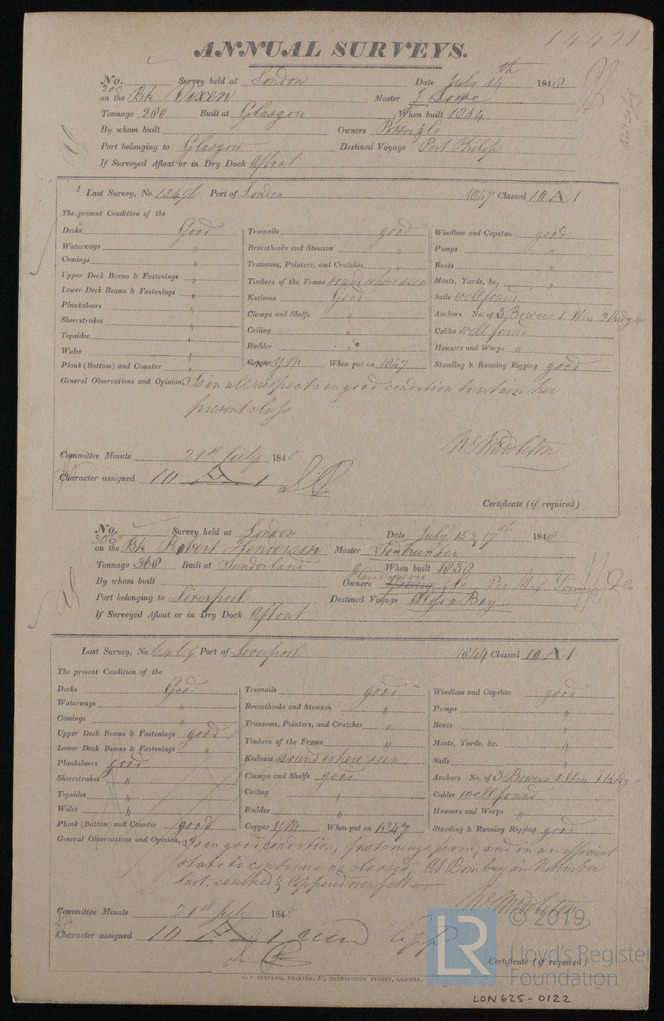 14421
ANNUAL SURVEYS.
No. Survey held at London Date July 14th 1848
on the Bk Vixen Master
Tonnage 280 Built at Glasgow When built 1844
By whom built Owners Potter & Co
Port belonging to Glasgow Destined Voyage Port Philip
If Surveyed Afloat or in Dry Dock Afloat
Last Survey, No. 13496 Port of London 1847 Classed 10 A 1
The present Condition of the
Decks Good
Waterways "
Comings "
Upper Deck Beams & Fastenings "
Lower Deck Beams & Fastenings "
Planksheers "
Sheerstrakes "
Topsides "
Wales "
Plank (Bottom) and Counter "
Treenails good
Breasthooks and Stemson "
Transoms, Pointers, and Crutches "
Timbers of the Frame sound where seen
Keelsons Good
Clamps and Shelfs "
Ceiling "
Rudder "
Copper YM When put on 1847
Windlass and Capstan good
Pumps "
Boats "
Masts, Yards, &c. "
Sails well found
Anchors No. of 3 Bowers 1 Strm 2 Kedg
Cables well found
Hawsers and Warps "
Standing & Running Rigging good
General Observations and Opinion, Is in all respects in good condition to retain her
present class
Wm Middleton
Committee Minute 21st July 1848
Character assigned 10 A 1
Certificate (if required)
No. Survey held at London Date July 15 & 17th 1848
306 on the Bk Robert Henderson Master
Tonnage 368 Built at Sunderland When built 1838
By whom built Owners Henderson & Co
Port belonging to Liverpool Destined Voyage Algoa Bay
If Surveyed Afloat or in Dry Dock Afloat
Last Survey, No. Port of Liverpool 1844 Classed 10 A 1
The present Condition of the
Decks Good
Waterways "
Comings "
Upper Deck Beams & Fastenings good
Lower Deck Beams & Fastenings "
Planksheers good
Sheerstrakes "
Topsides "
Wales "
Plank (Bottom) and Counter good
Treenails good
Breasthooks and Stemson "
Transoms, Pointers, and Crutches "
Timbers of the Frame "
Keelsons sound where seen
Clamps and Shelfs good
Ceiling "
Rudder "
Copper YM When put on 1847
Windlass and Capstan good
Pumps "
Boats "
Masts, Yards, &c. "
Sails "
Anchors No. of 3 Bowers 1 Strm 1 Kedg
Cables well found
Hawsers and Warps "
Standing & Running Rigging good
General Observations and Opinion, Is in good condition, fastenings firm, and in an efficient
state to continue as classed. At Bombay in November
last, caulked & Coppered over felt
Wm Middleton
Committee Minute 21st July 1848
Character assigned 10 A 1
Certificate (if required)
LR
© 2019
Lloyd's Register
Foundation
LON625-0122